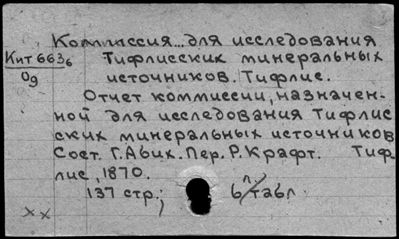 Комиссия... для исследования
Кит 663б Тифлисских минеральных
Og источников. Тифлис.
Отчет коммиссии, назначен-
ной для исследования Тифлис
ских минеральных источников
Сост. Г. Абих. Пер. Р. Крафт. Тиф-
лис, 1870.
137 стр.; 6 л табл
xx